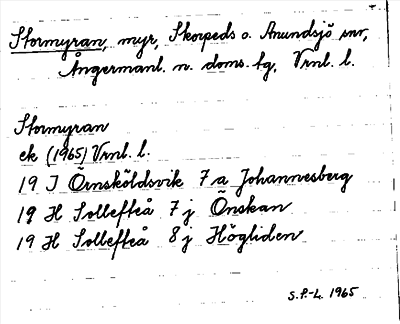 Stormyran, myr, Skorpeds o. Anundsjö snr,
Ångermanl. n. doms. tg, Vrnl. l.
Stormyran
ek (1965) Vrnl. l.
19 I Örnsköldsvik 7 a Johannesberg
19 H Sollefteå 7 j Önskan
19 H Sollefteå 8 j Högliden
S.P.-L. 1965